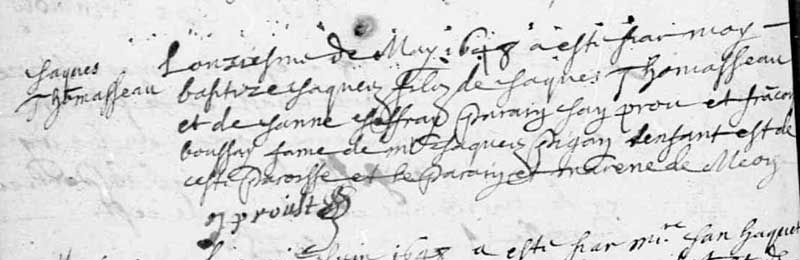 Jaques
Thomasseau
Lonziesme de May 1648 a esté par moy
baptize Jaques fils de Jaques Thomasseau
et de Janne Joffray parain Jay prou et
boussay fame de mtre Jaques Pigay Lenfant est de
ceste paroisse et le parain et marene de
proust
Juin 1648 a esté par mre Jan Jaques